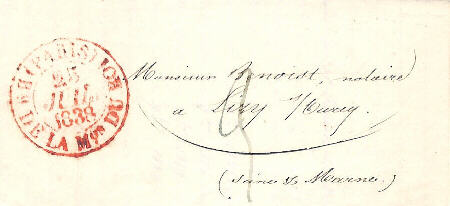 (PARIS)
25
JUIL
1838
DE LA Mon DU ROI
Monsieur Benoist, notaire
a Lizy s/ Ourcq
(Seine & Marne)